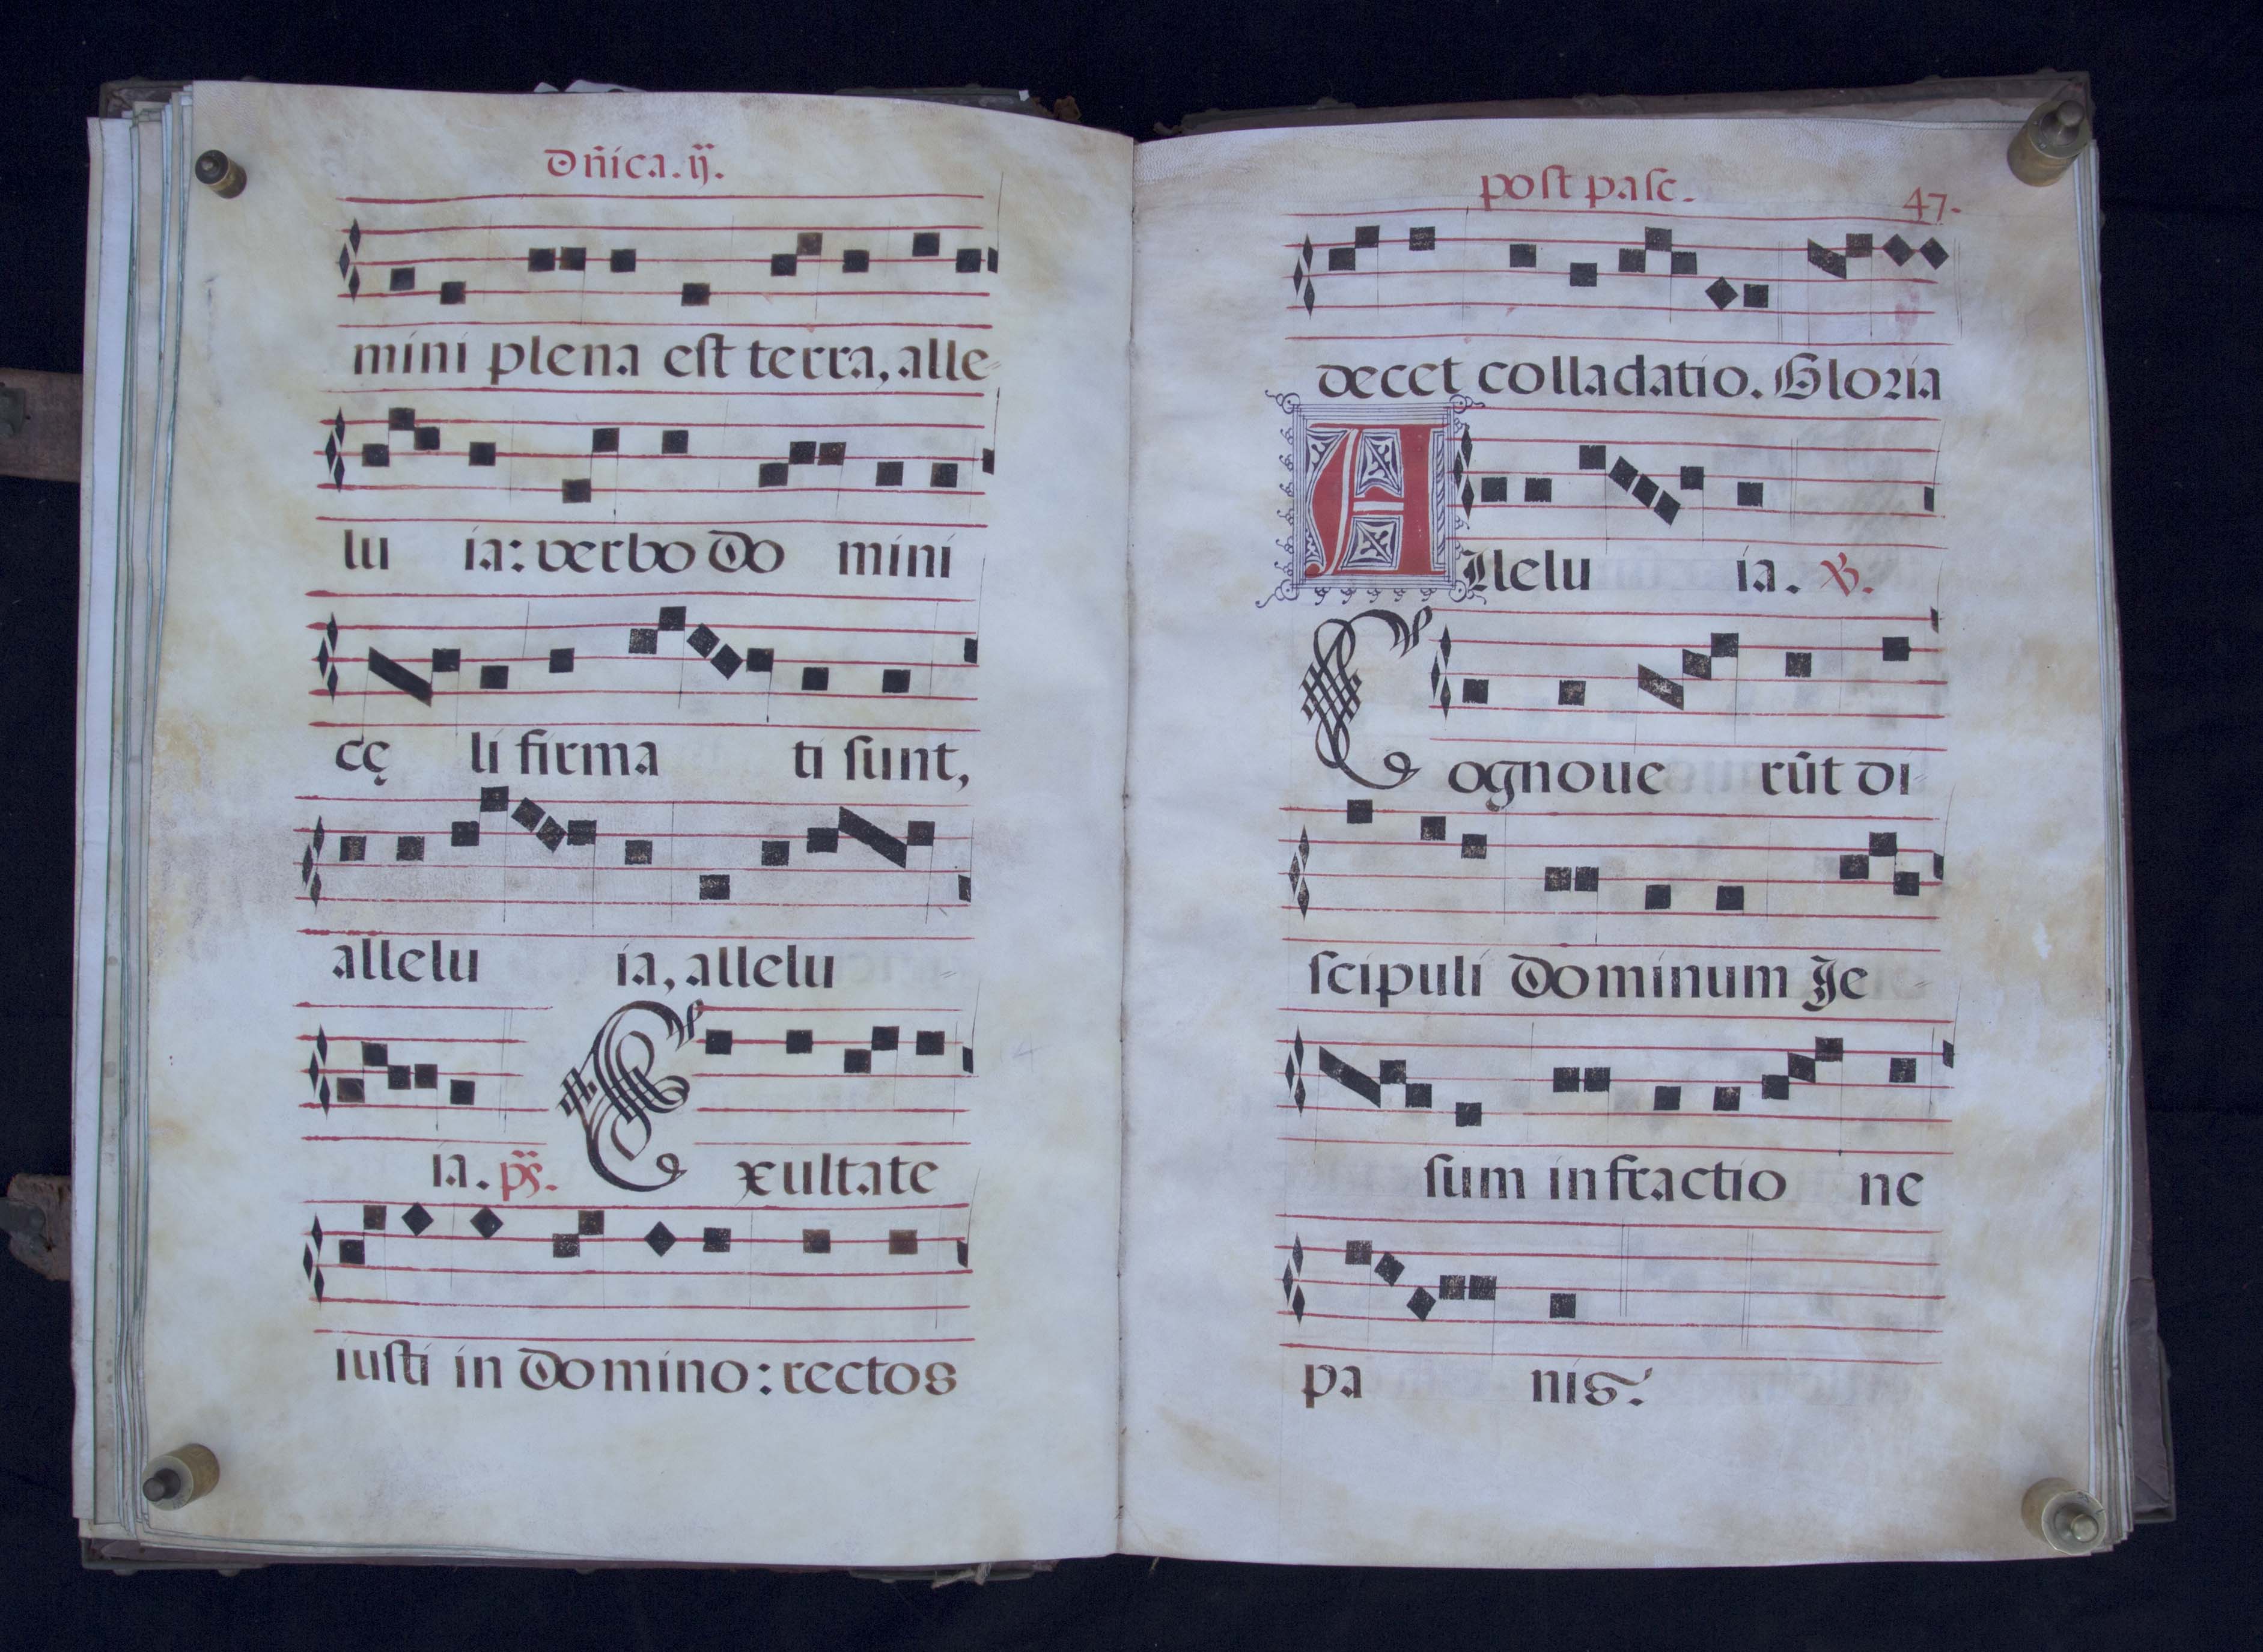 Dñica. ij.
mini plena est terra, alle-
lu ia: verbo Do mini
cę li firma ti sunt,
allelu ia, allelu -
ia. ps. Exultate
iusti in Domino: rectos
post pasc. 47.
decet colladatio. Gloria
Allelu ia. ℣.
Cognoue rũt di-
scipuli Dominum Je -
sum in fractio ne
pa nis.